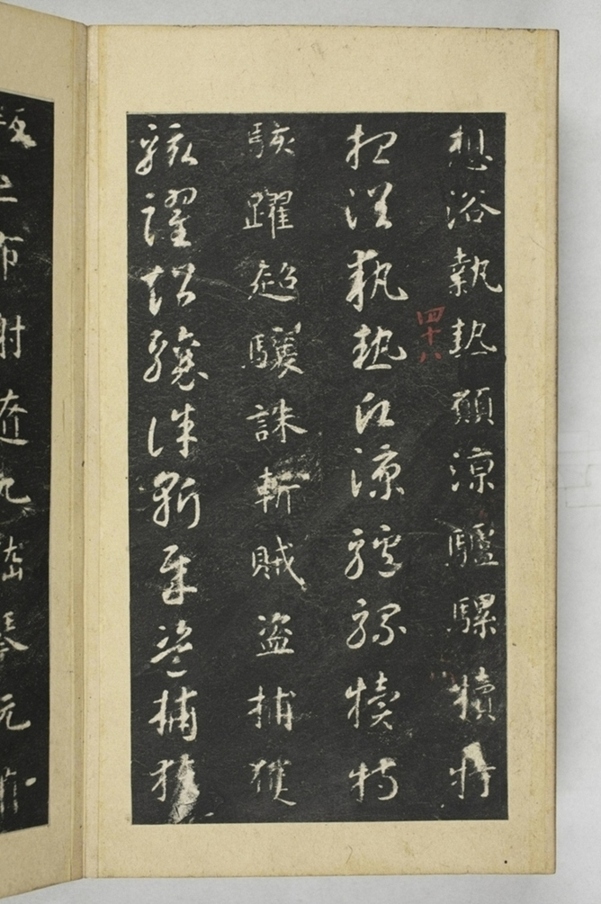 想浴執熱願涼驢騾犢特
四十八
想浴執熱願涼驢騾犢特
駭躍超驤誅斬賊盜捕獲
駭躍超驤誅斬賊盜捕獲
叛亡布射遼丸嵇琴阮